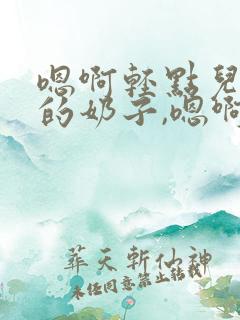 嗯啊轻點兒
的奶子,嗯啊
葬天斩仙神
未经同意禁止转载